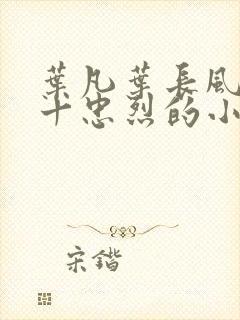 葉凡葉長風
十忠烈的小
宋鍇